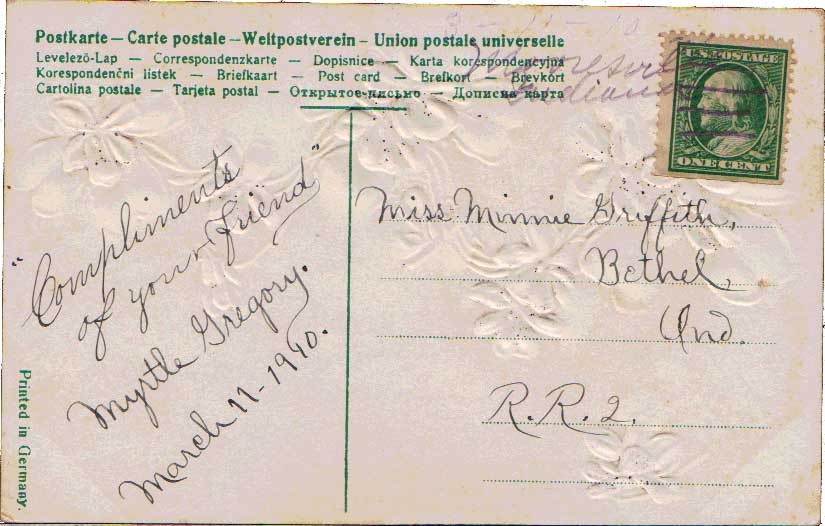 Postkarte – Carte postale – Weltpostverein – Union postale universelle
Levelező-Lap — Correspondenzkarte — Dopisnice — Karta korespondencyjna
Korespondenční listek — Briefkaart — Post card — Brefkort — Brevkort
Cartolina postale — Tarjeta postal — Открытое письмо — Дописна карта
Indiana
U.S. POSTAGE
ONE CENT
"Compliments
of your friend"
Myrtle Gregory.
March 11 - 1910.
Miss Minnie Griffith,
Bethel,
Ind.
R.R. 2.
Printed in Germany.